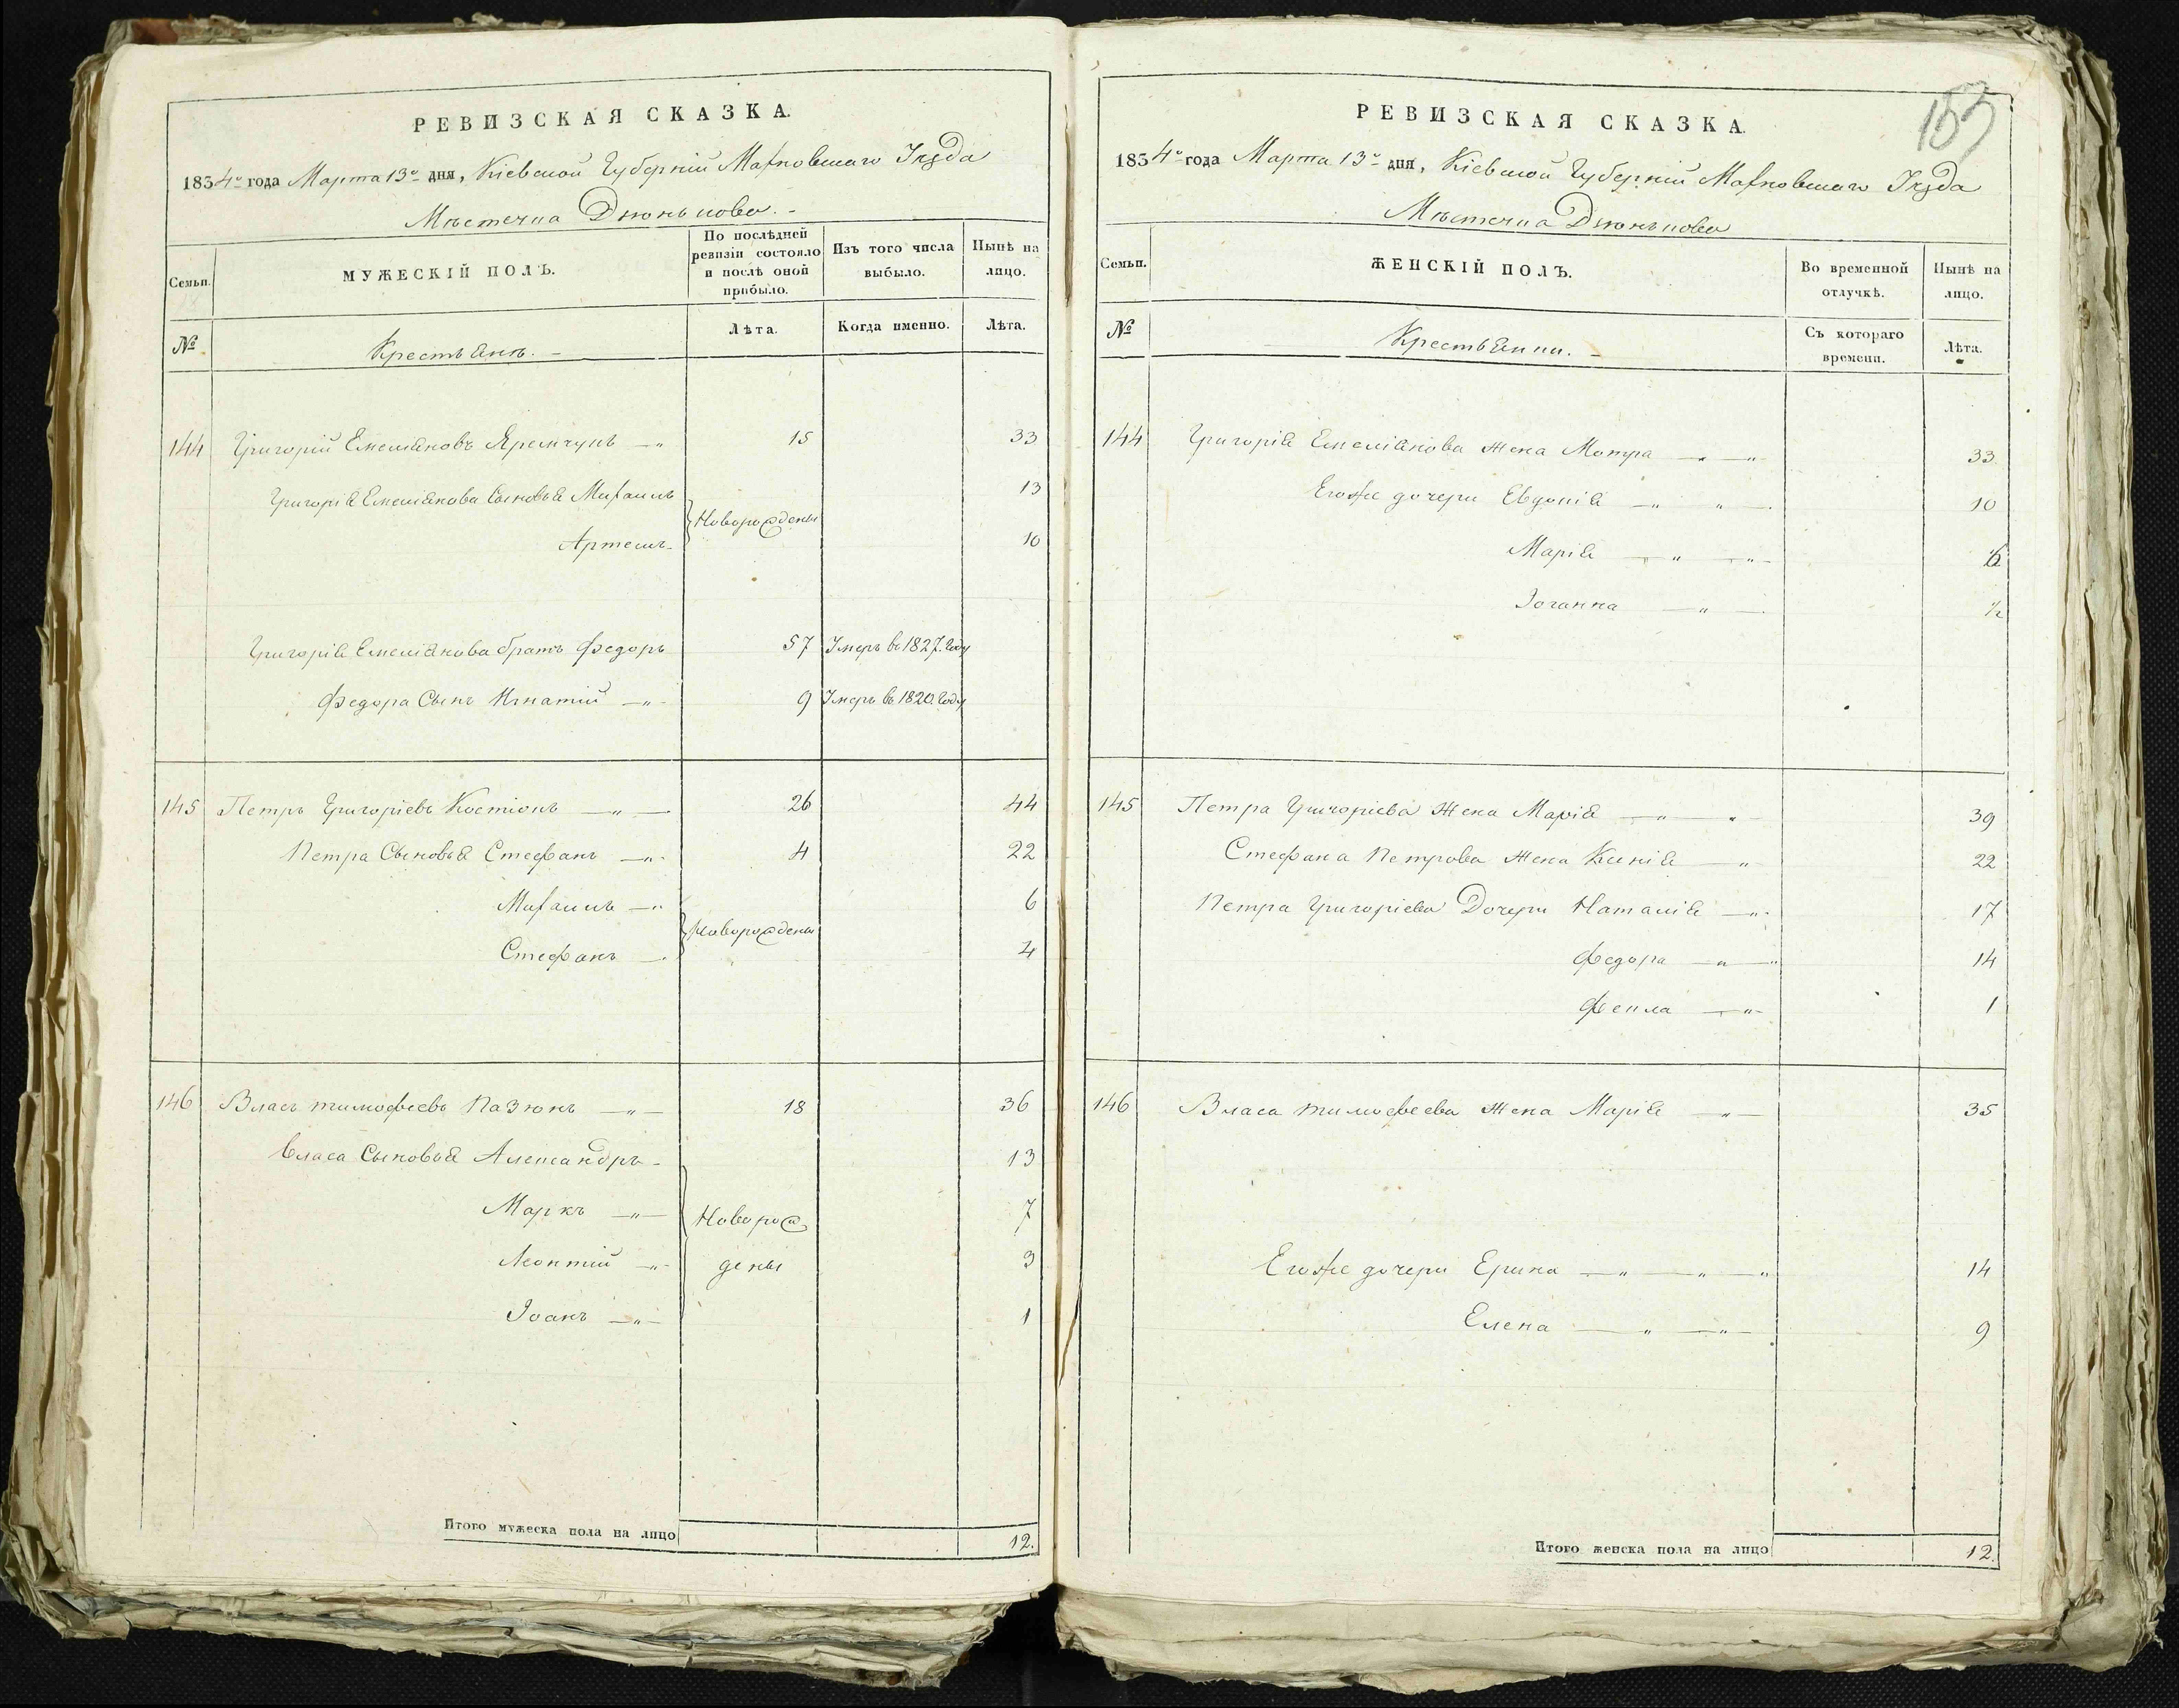 РЕВИЗСКАЯ СКАЗКА.
1834го года Марта 13го дня, Кіевской Губерніи Махновскаго Уезда
Мѣстечка Дзюнькова. -
Семьи.
МУЖЕСКІЙ ПОЛЪ.
По послѣдней ревизіи состояло и послѣ оной прибыло.
Изъ того числа выбыло.
Нынѣ на лицо.
№
Крестьянъ. -
Лѣта.
Когда именно.
Лѣта.
144 Григорій Емельяновъ Яремчукъ 15 33
Григорія Емельянова Сыновья Михаилъ 13
Новорождены
Артемъ 10
Григорія Емеліянова братъ Федоръ 57 Умеръ въ 1827. Году
Федора Сынъ Игнатій 9 Умеръ въ 1820. Году
145 Петръ Григоріевъ Костюкъ 26 44
Петра Сыновья Стефанъ 4 22
Михаилъ 6
Новорождены
Стефанъ 4
146 Власъ тимофеевъ Пазюкъ 18 36
Власа Сыновья Александръ 13
Маркъ Новорож 7
Леонтій дены 3
Іоанъ 1
Итого мужеска пола на лицо 12.
153
РЕВИЗСКАЯ СКАЗКА.
1834го года Марта 13го дня, Кіевской Губерніи Махновскаго Уезда
Мѣстечка Дзюнькова
Семьи.
ЖЕНСКІЙ ПОЛЪ.
Во временной отлучкѣ.
Нынѣ на лицо.
№
Крестьянки. -
Съ котораго времени.
Лѣта.
144 Григорія Емеліянова жена Мотра 33
Егоже дочери Евдокія 10
Марія 6
Іоганна ½
145 Петра Григоріева жена Марія 39
Стефана Петрова жена Ксенія 22
Петра Григоріева Дочери Наталія 17
Федора 14
Фекла 1
146 Власа тимофеева жена Марія 35
Егоже дочери Ерина 14
Елена 9
Итого женска пола на лицо 12.